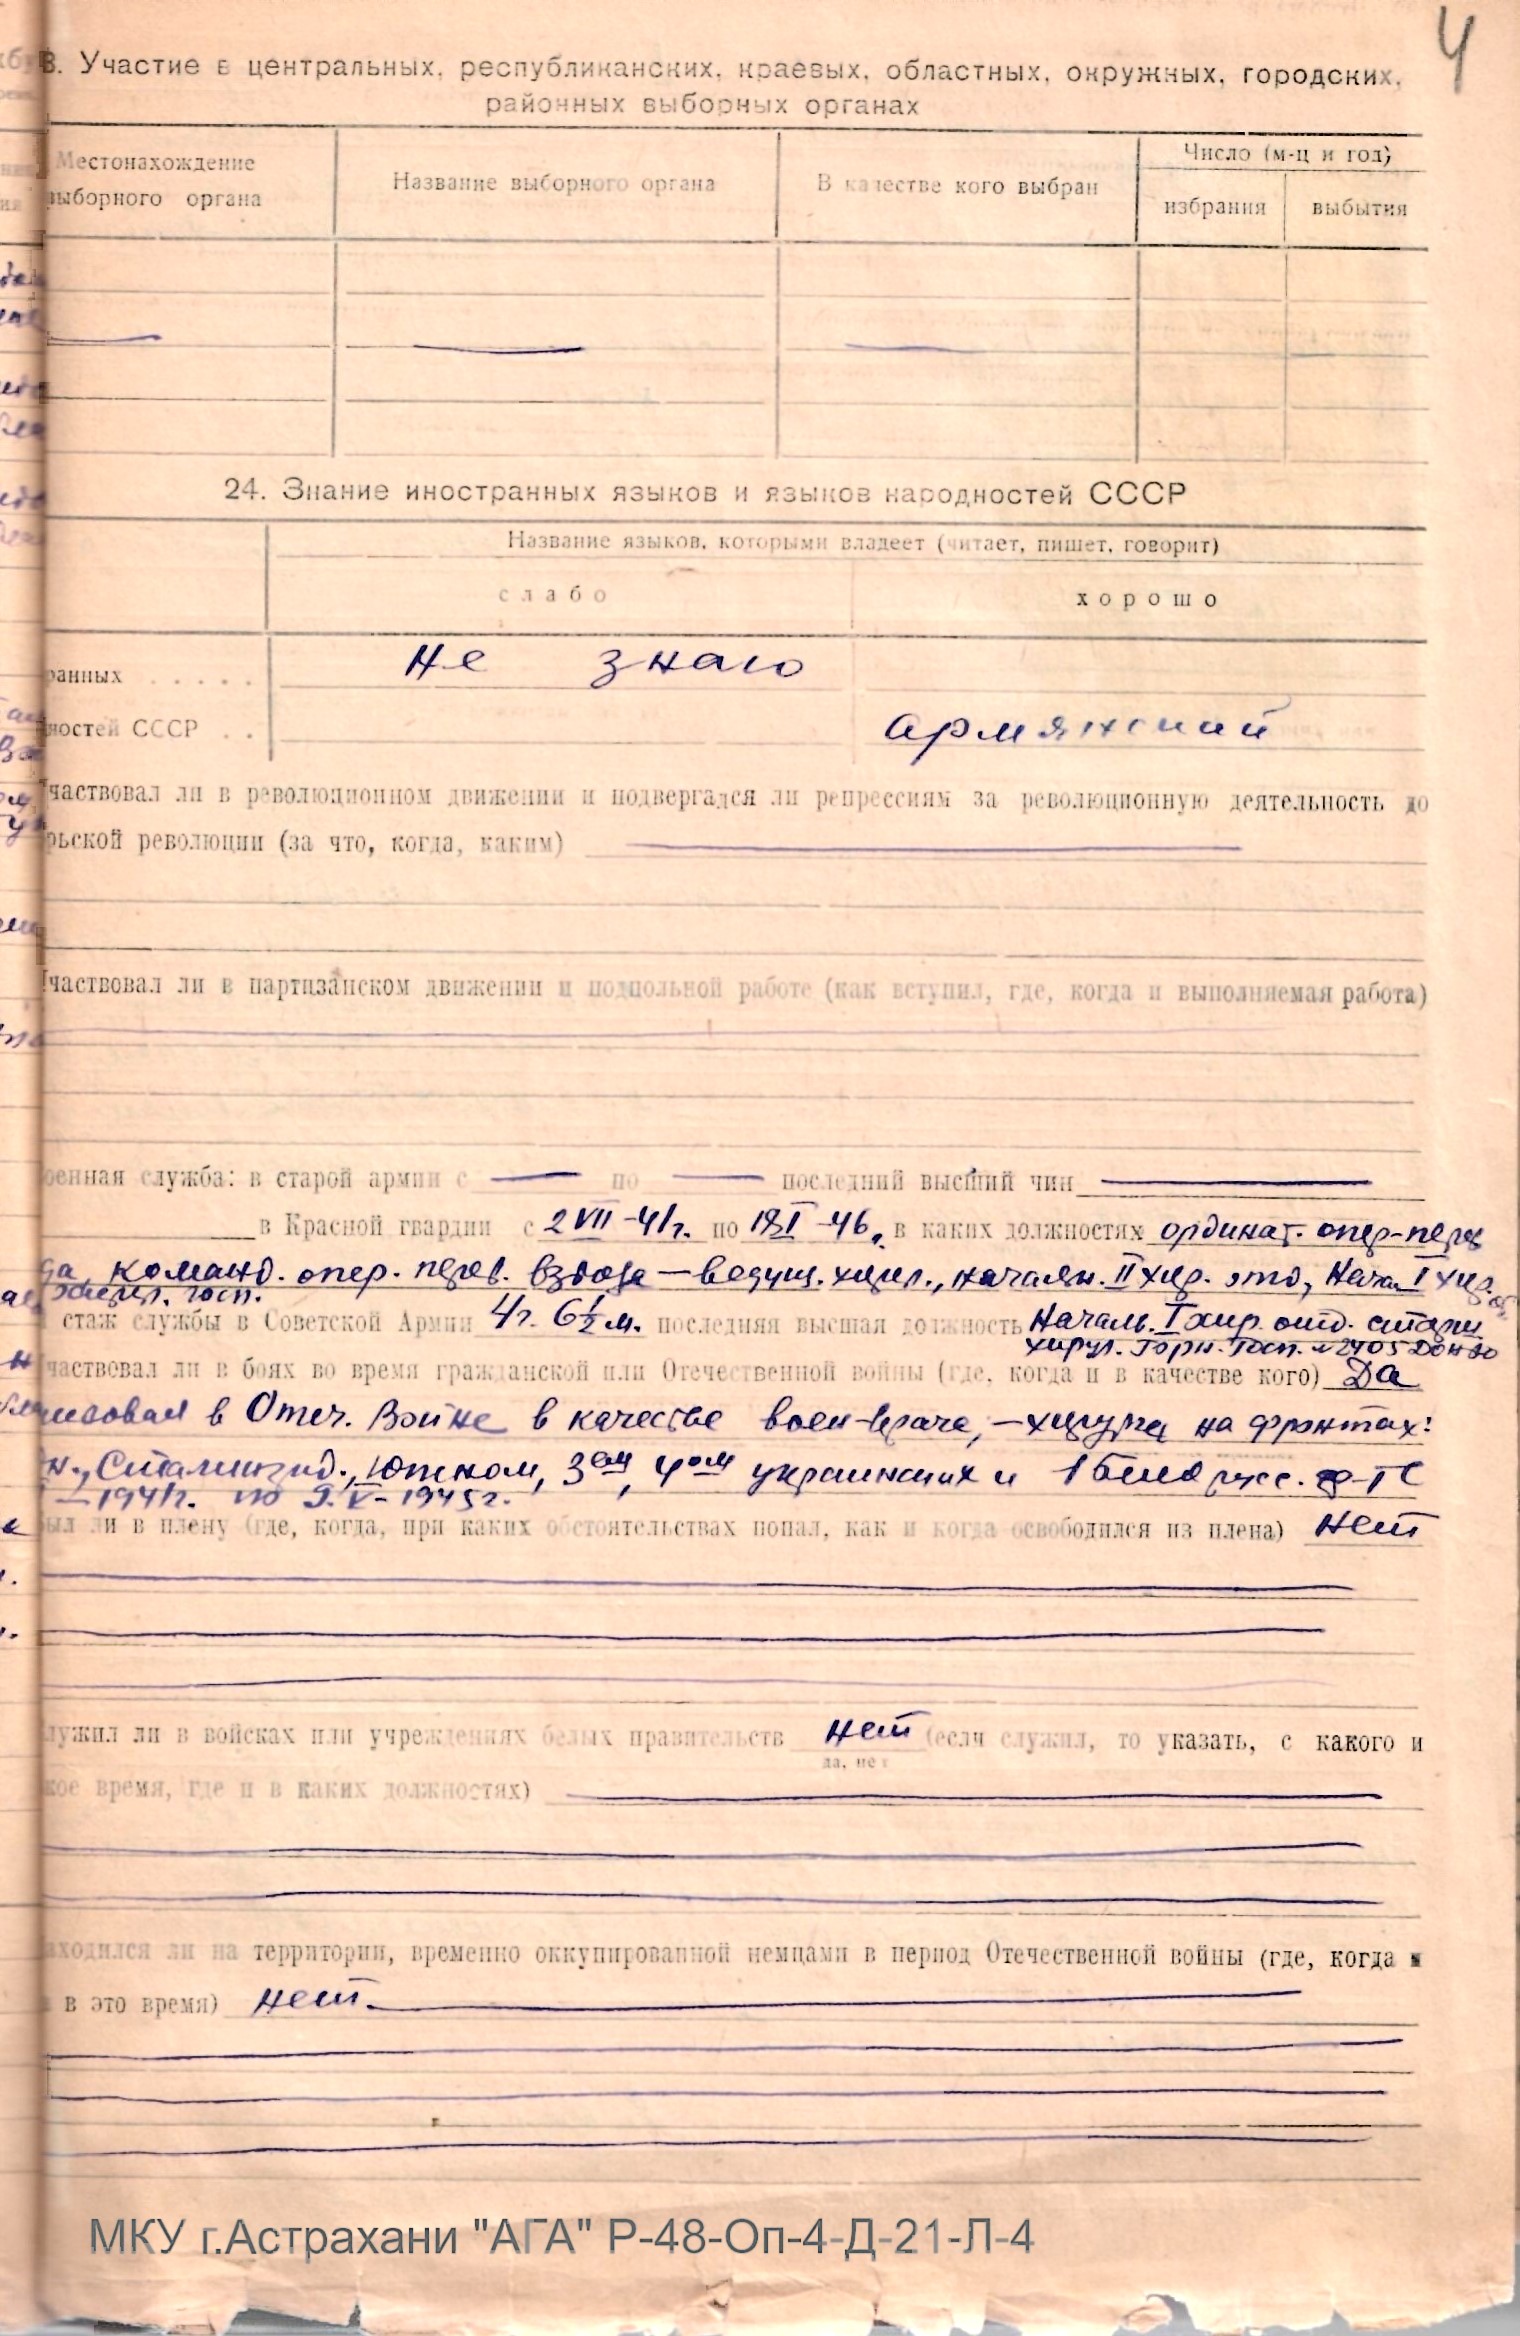 4
3. Участие в центральных, республиканских, краевых, областных, окружных, городских,
районных выборных органах
Местонахождение
выборного органа
Название выборного органа
В качестве кого выбран
Число (м-ц и год)
избрания
выбытия
24. Знание иностранных языков и языков народностей СССР
Название языков, которыми владеет (читает, пишет, говорит)
слабо
хорошо
ранных ..... не знаю
ностей СССР .. армянский
частвовал ли в революционном движении и подвергался ли репрессиям за революционную деятельность до
рьской революции (за что, когда, каким)
частвовал ли в партизанском движении и подпольной работе (как вступил, где, когда и выполняемая работа)
оенная служба: в старой армии с — по — последний высший чин —
в Красной гвардии с 2 VII-41г. по I-46, в каких должностях ординат. опер-перев
да, команд. опер. перев. взвода — ведущ. хирг., началн. II хир. отд, Нача. I хир.
госп.
стаж службы в Советской Армии 4г. 6½ м. последняя высшая должность Началь. I хир. отд. старш
хирург. Госп. №2405
частвовал ли в боях во время гражданской или Отечественной войны (где, когда и в качестве кого) Да
в Отеч. Войне в качестве воен-врача, — хирурга на фронтах:
н., Сталинград., Южном, 3ем, 4ом украинских и 1 Белорусс. ф-тс
— 1941г. по 9.V-1945г.
ыл ли в плену (где, когда, при каких обстоятельствах попал, как и когда освободился из плена) нет
лужил ли в войсках или учреждениях белых правительств нет (если служил, то указать, с какого и
да, нет
кое время, где и в каких должностях)
аходился ли на территории, временно оккупированной немцами в период Отечественной войны (где, когда и
в это время) нет.
МКУ г.Астрахани "АГА" Р-48-Оп-4-Д-21-Л-4